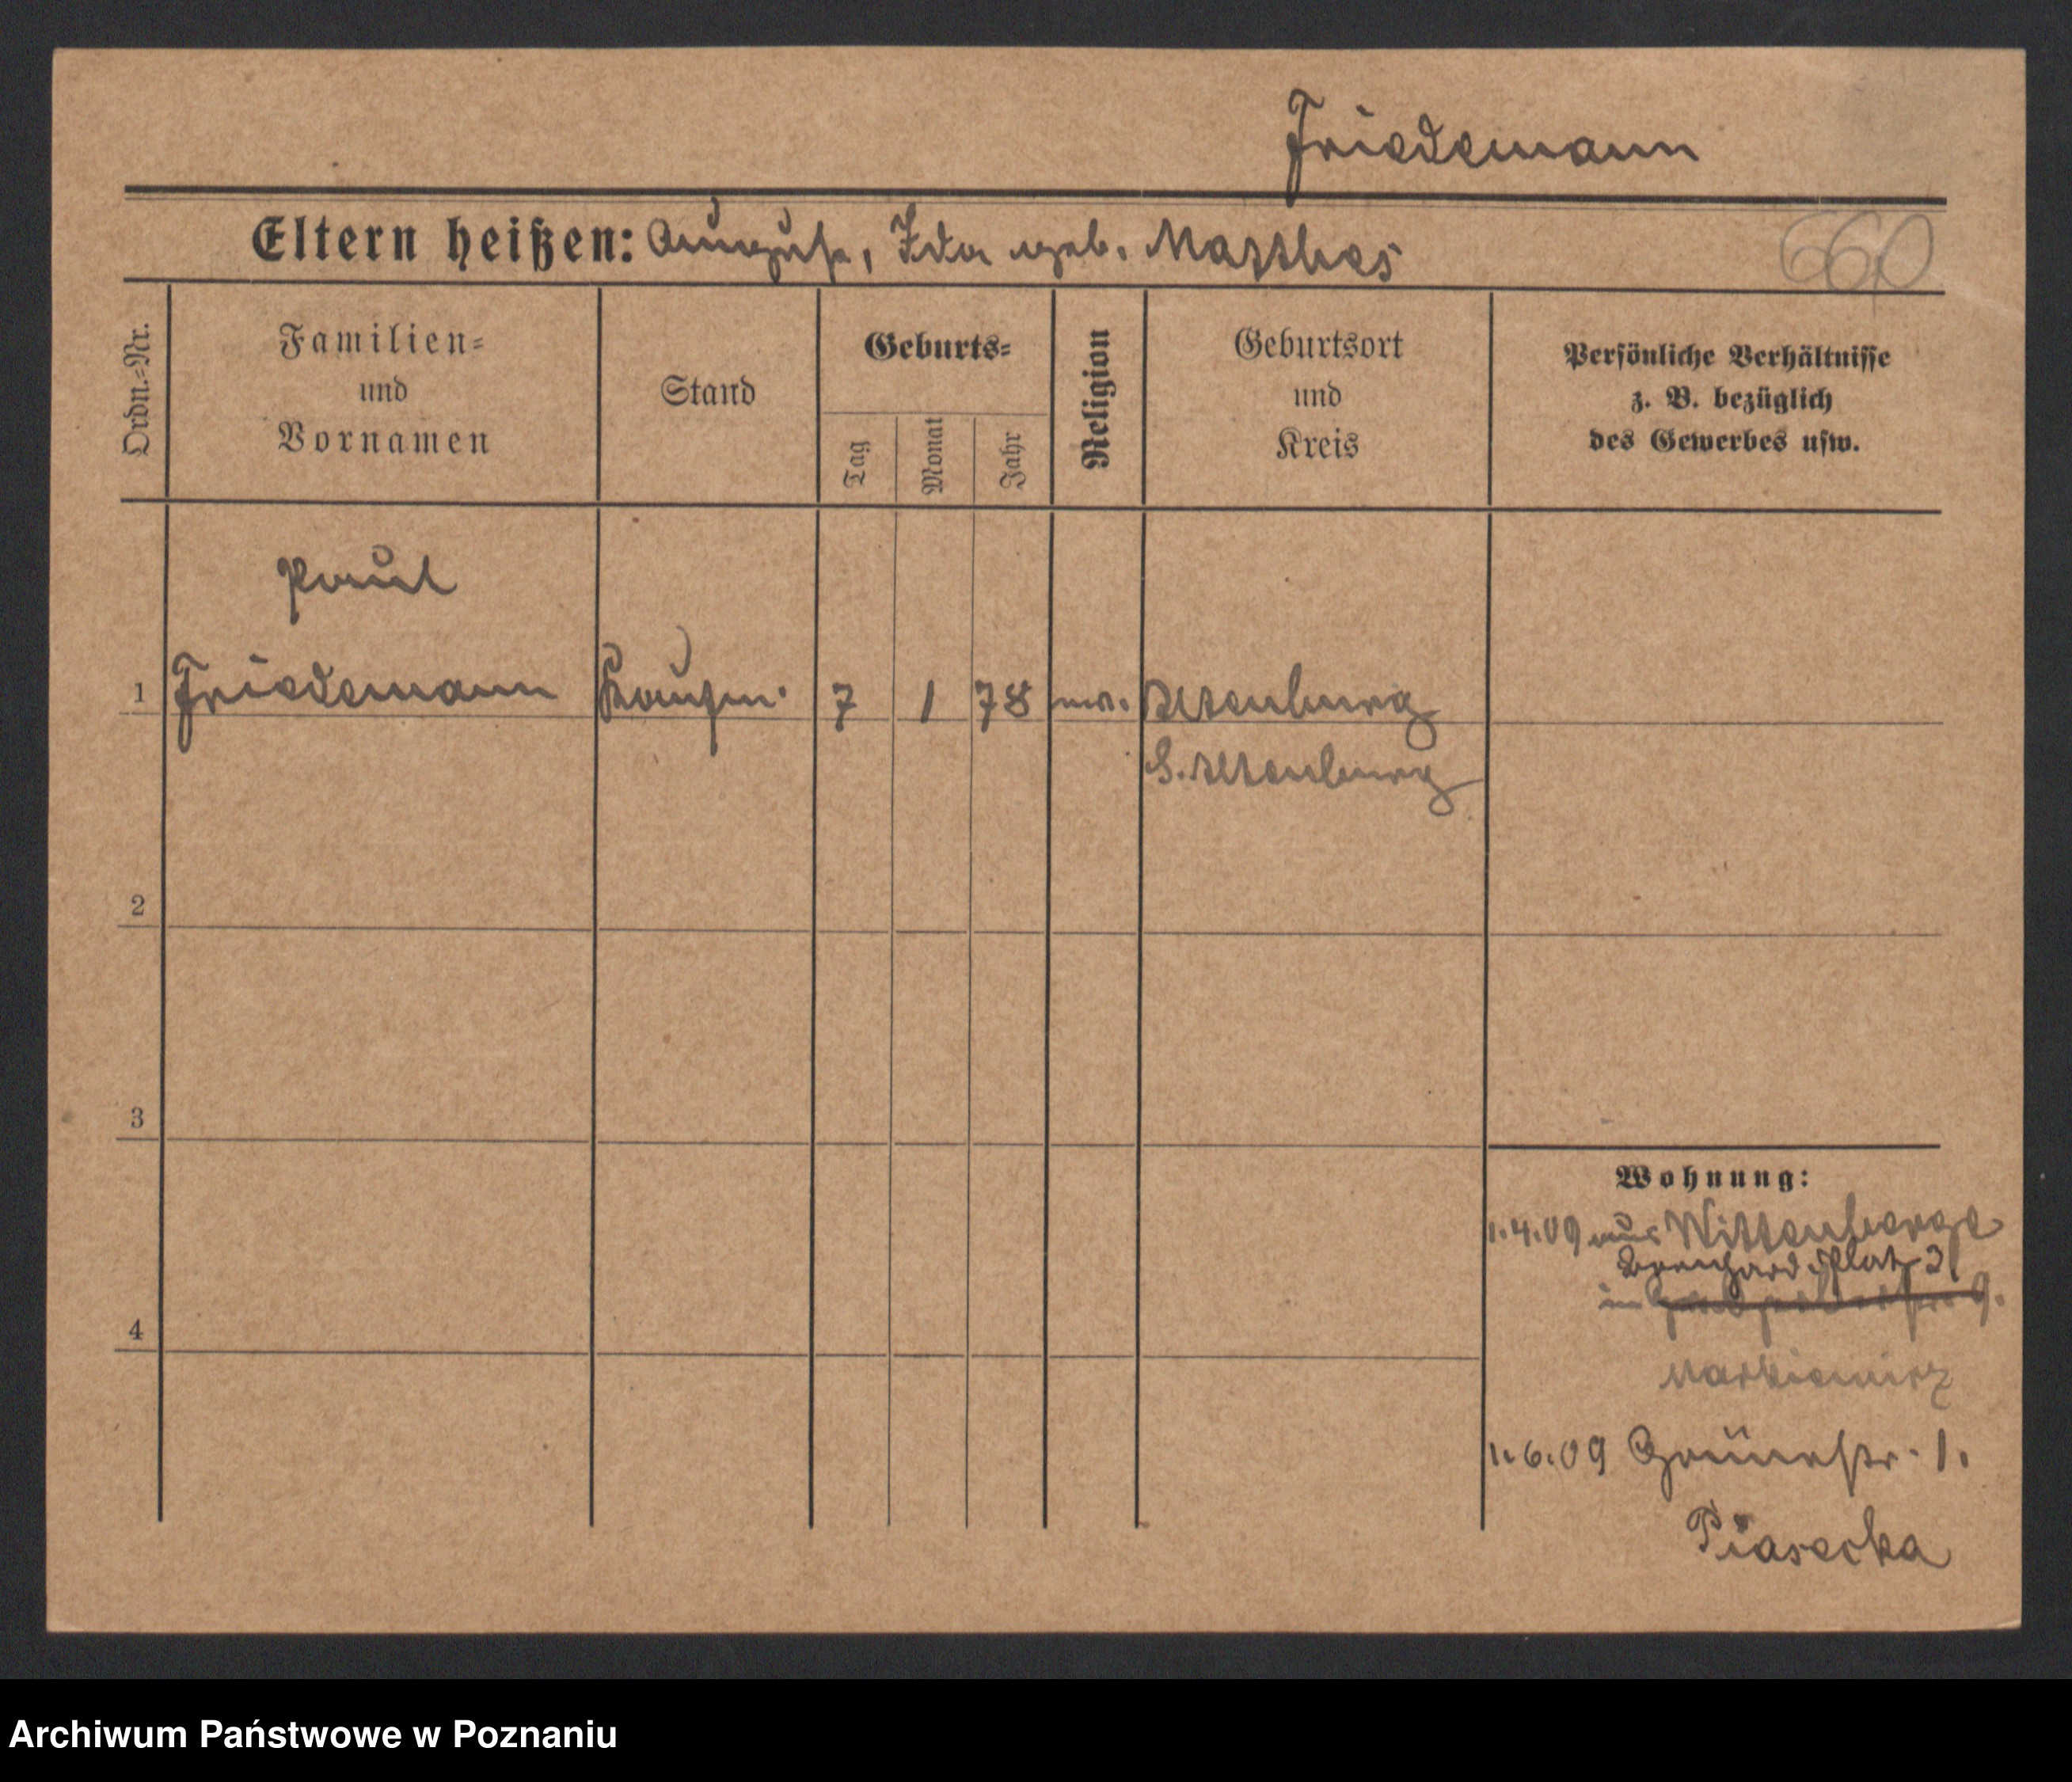 Friedemann
Eltern heißen: August, Ida geb. Matthes
660
Ordn.=Nr.
Familien=
und
Vornamen
Stand
Geburts=
Tag
Monat
Jahr
Religion
Geburtsort
und
Kreis
Persönliche Verhältnisse
z. B. bezüglich
des Gewerbes usw.
Paul
1 Friedemann Kaufm. 7 1 78 ev. Altenburg
S. Altenburg
2
3
4
Wohnung:
1.4.09 aus Wittenberge
Bernhard. Platz 2
in 9.
Markiewicz
1.6.09 Grünestr. 1.
Piasecka
Archiwum Państwowe w Poznaniu